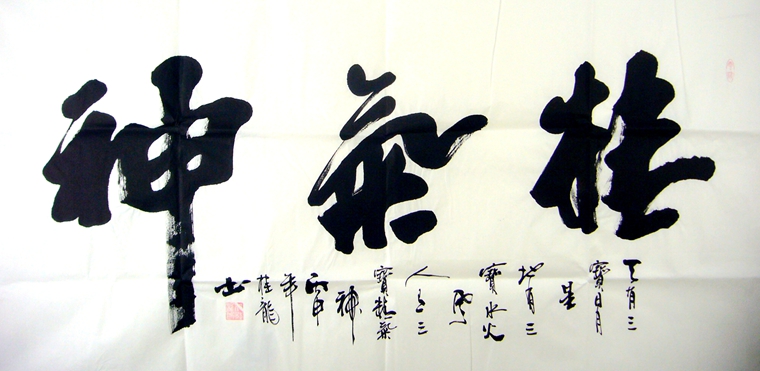 精氣神
天有三
寶日月
星
地有三
寶水火
風
人有三
寶精氣
神
丙申
年
桂龍
书